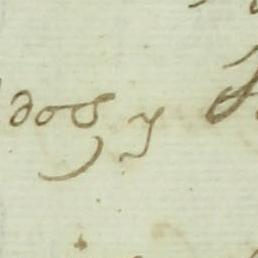 dos y